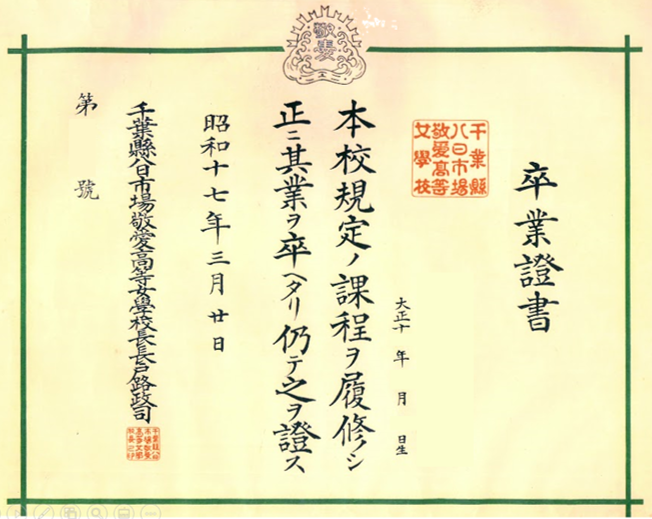 敬愛
卒業證書
千葉縣
八日市場
敬愛高等
女學校
大正十 年 月 日生
本校規定ノ課程ヲ履修シ
正ニ其業ヲ卒ヘタリ仍テ之ヲ證ス
昭和十七年三月廿日
千葉縣八日市場敬愛高等女學校長長戸路政司
第 號